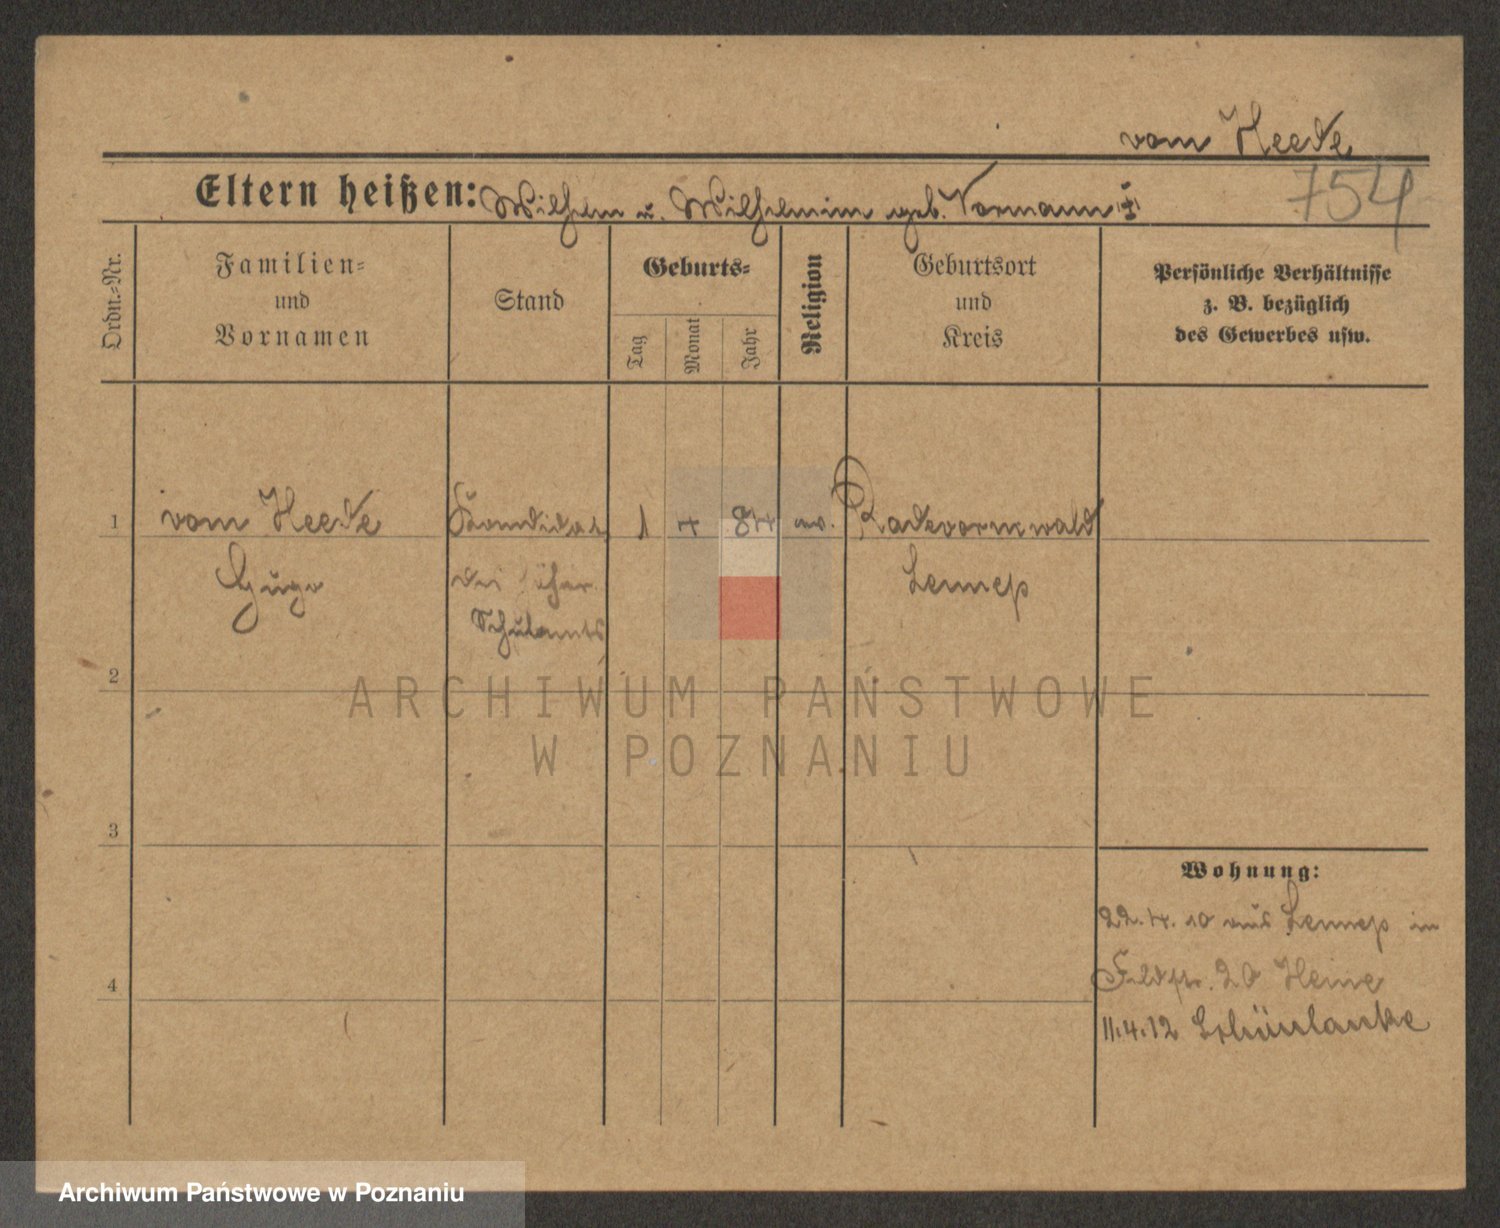 vom Heede
754
Eltern heißen: Wilhelm u. Wilhelmine geb. Vormann
Ordn.=Nr.
Familien=
und
Vornamen
Stand
Geburts=
Tag
Monat
Jahr
Religion
Geburtsort
und
Kreis
Persönliche Verhältnisse
z. B. bezüglich
des Gewerbes usw.
1 vom Heede Kandidat 1 4 84 ev. Radevormwald
Hugo des höher. Lennep
Schulamts
2
ARCHIWUM PAŃSTWOWE
W POZNANIU
3
Wohnung:
22.4.10 aus Lennep in
4 Feldstr. 20 Heine
11.4.12 Schönlanke
Archiwum Państwowe w Poznaniu